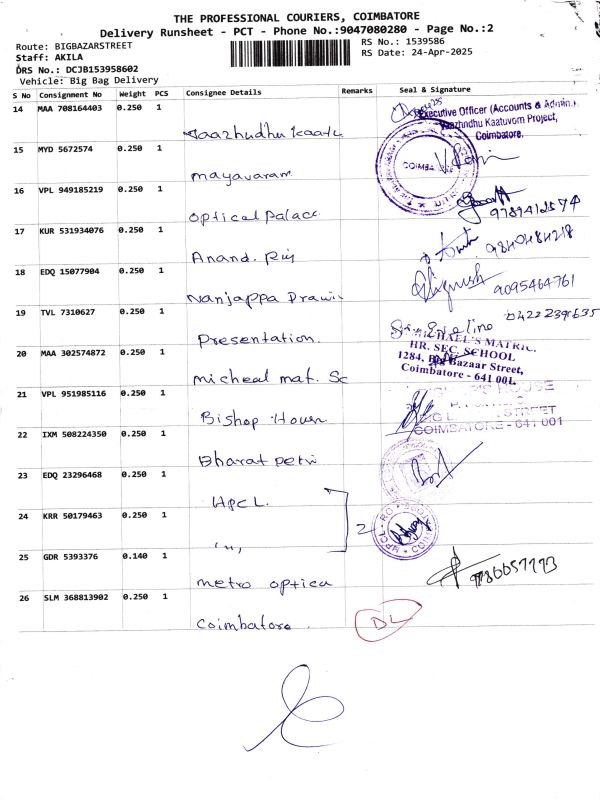 THE PROFESSIONAL COURIERS, COIMBATORE
Delivery Runsheet - PCT - Phone No.:9047080280 - Page No.:2
Route: BIGBAZARSTREET
RS No.: 1539586
Staff: AKILA
RS Date: 24-Apr-2025
DRS No.: DCJB153958602
Vehicle: Big Bag Delivery
S No Consignment No Weight PCS Consignee Details Remarks Seal & Signature
14 MAA 708164403 0.250 1
Executive Officer (Accounts & Admin.)
Vaazhndhu Kaattuvom Project,
Coimbatore.
15 MYD 5672574 0.250 1
mayavaram
16 VPL 949185219 0.250 1
optical palace
9789412574
17 KUR 531934076 0.250 1
Anand.
9840484218
18 EDQ 15077904 0.250 1
Nanjappa
9095464761
19 TVL 7310627 0.250 1
Presentation.
0422 2391635
20 MAA 302574872 0.250 1
micheal mat. Sc
HR. SEC. SCHOOL
1284, Big Bazaar Street,
Coimbatore - 641 001.
21 VPL 951985116 0.250 1
Bishop House
BISHOP'S HOUSE
STREET
COIMBATORE - 641 001
22 IXM 508224350 0.250 1
Bharat petr
23 EDQ 23296468 0.250 1
HPCL.
24 KRR 50179463 0.250 1
2
25 GDR 5393376 0.140 1
metro optica
26 SLM 368813902 0.250 1
Coimbatore.
DL